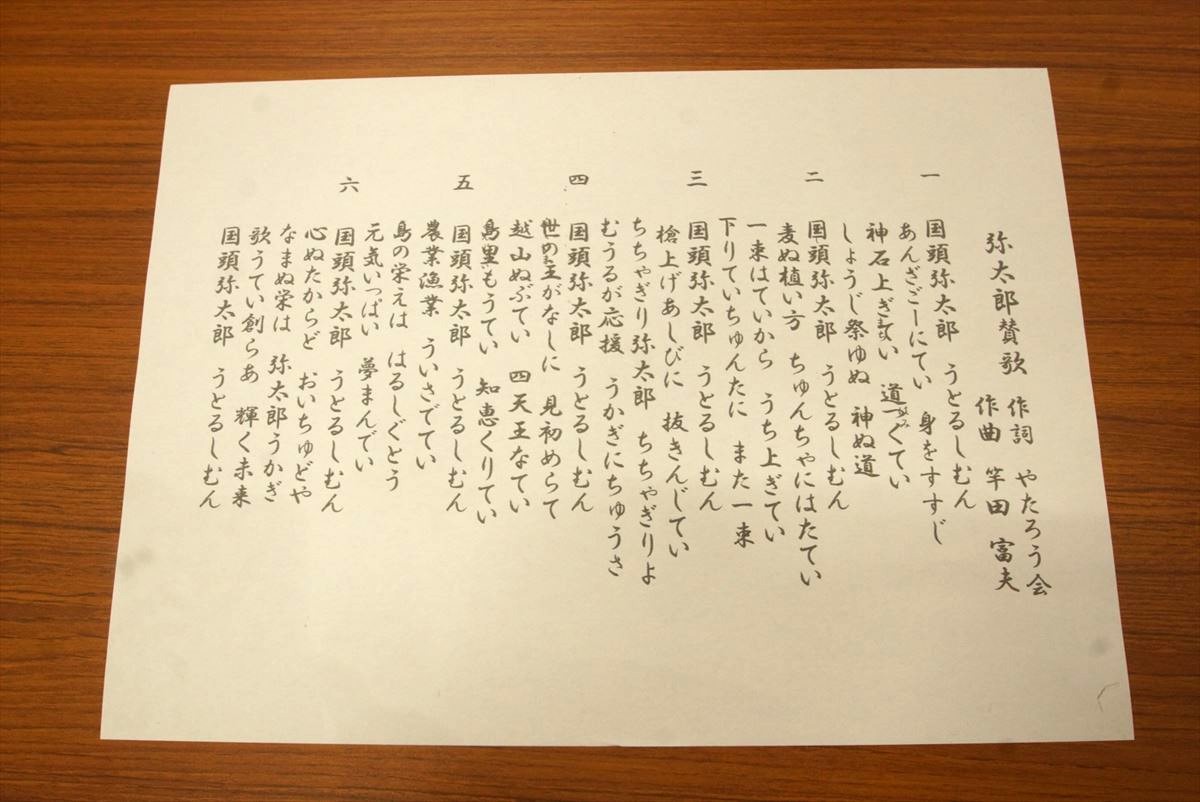 弥太郎賛歌 作詞 やたろう会
作曲 竿田 富夫
一 国頭弥太郎 うとるしむん
あんざごーにてい 身をすすじ
神石上ぎ い 道つくてい
しょうじ祭ゆぬ 神ぬ道
二 国頭弥太郎 うとるしむん
麦ぬ植い方 ちゅんちゃにはたてい
一束はていから うち上ぎてい
下りていちゅんたに また一束
三 国頭弥太郎 うとるしむん
槍上げあしびに 抜きんじてい
ちちゃぎり弥太郎 ちちゃぎりよ
むうるが応援 うかぎにちゅうさ
四 国頭弥太郎 うとるしむん
世の主がなしに 見初めらて
越山ぬぶてい 四天王なてい
島里もうてい 知恵くりてい
五 国頭弥太郎 うとるしむん
農業漁業 ういさでてい
島の栄えは はるしぐとう
元気いっぱい 夢まんでい
六 国頭弥太郎 うとるしむん
心ぬたからど おいちゅどや
なまぬ栄は 弥太郎うかぎ
歌うてい創らあ 輝く未来
国頭弥太郎 うとるしむん